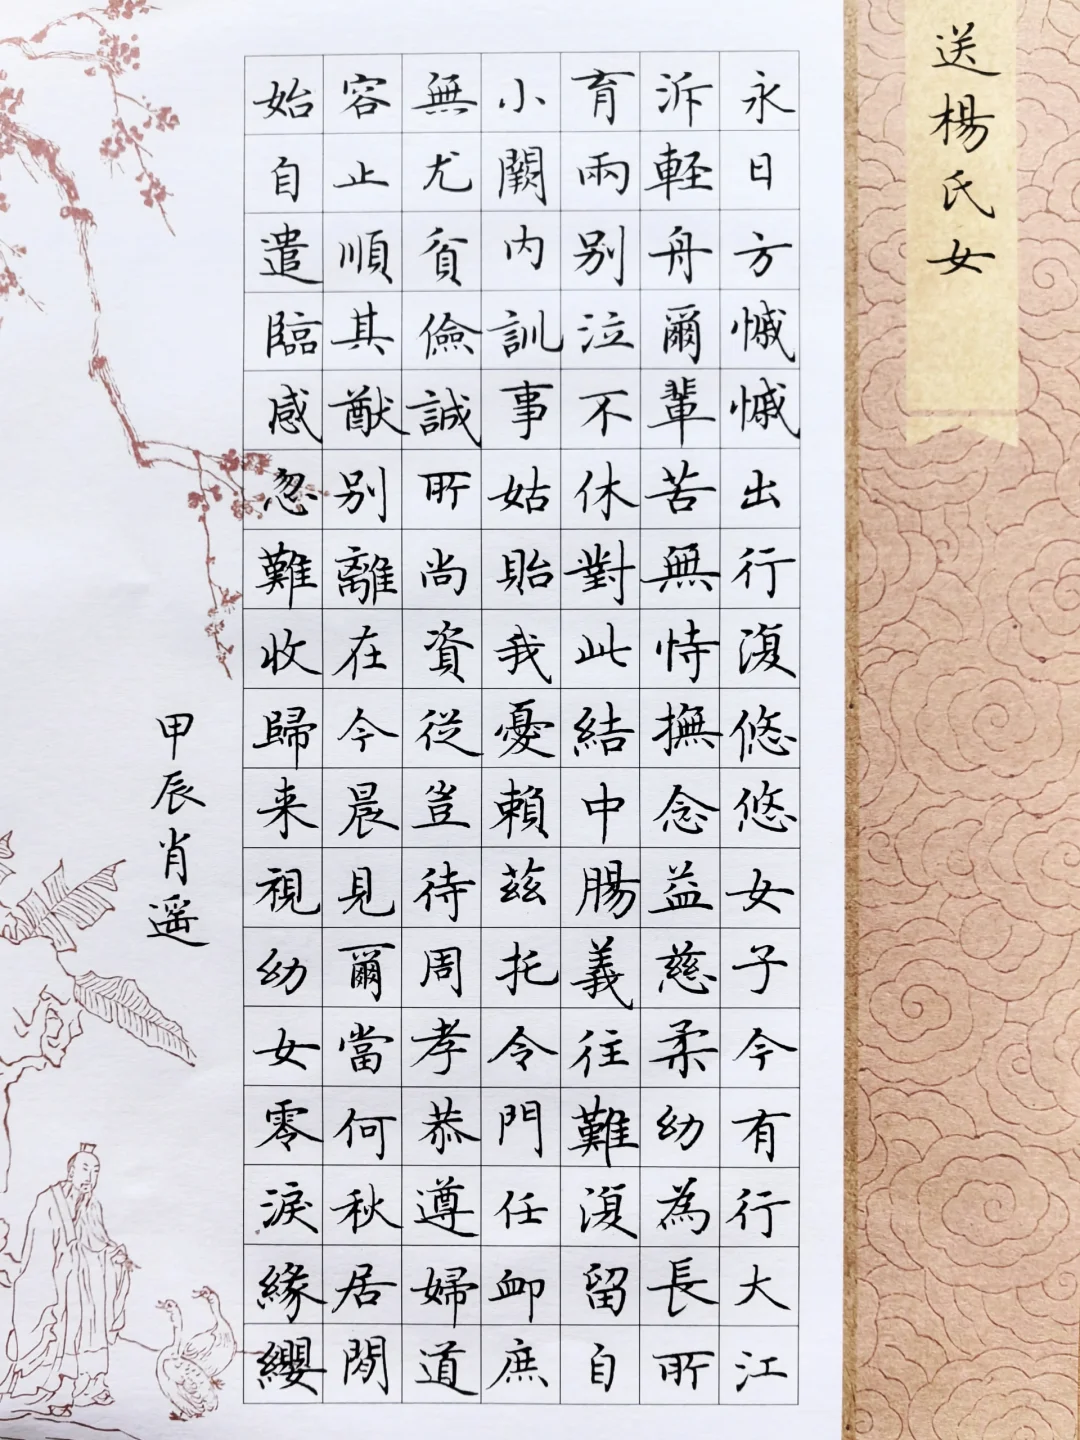 送楊氏女
永日方慽慽出行復悠悠女子今有行大江
泝軽舟爾輩苦無恃撫念益慈柔幼為長所
育兩别泣不休對此結中腸義往難復留自
小闕内訓事姑貽我憂賴茲托令門任卹庶
無尤貧儉誠所尚資從豈待周孝恭遵婦道
容止順其猷别離在今晨見爾當何秋居閒
始自遣臨感忽難收歸来視幼女零淚緣纓
甲辰肖遥